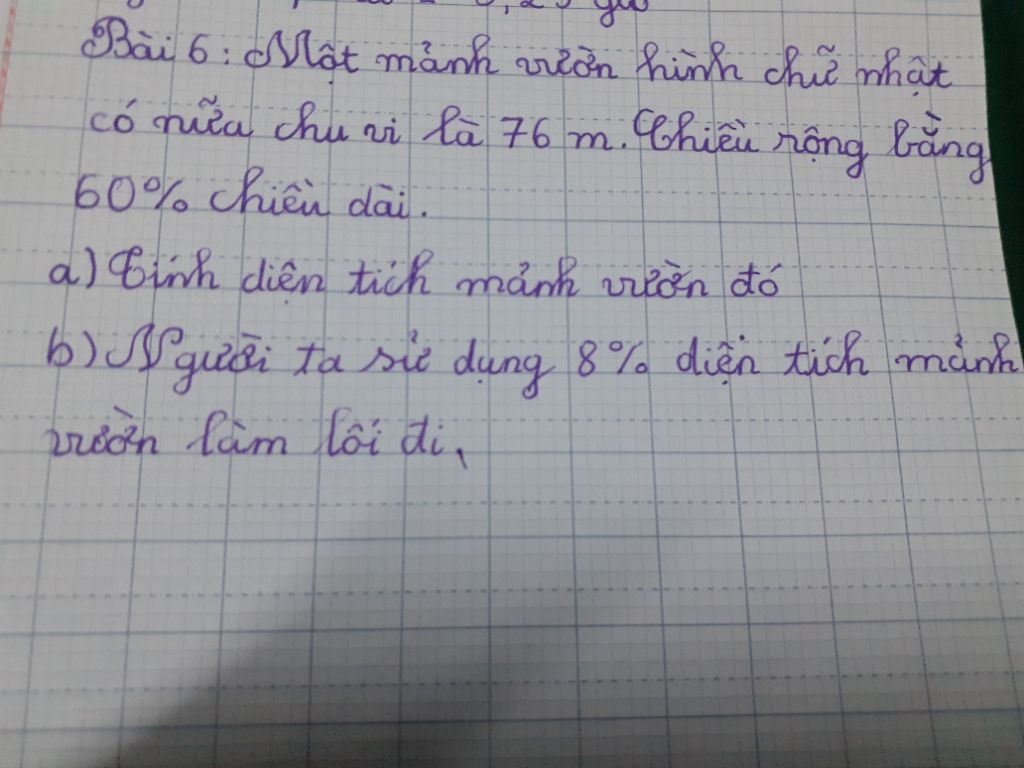 Bài 6: Một mảnh vườn hình chữ nhật
có nửa chu vi là 76 m. Chiều rộng bằng
60% chiều dài.
a) Tính diện tích mảnh vườn đó
b) Người ta sử dụng 8% diện tích mảnh
vườn làm lối đi,